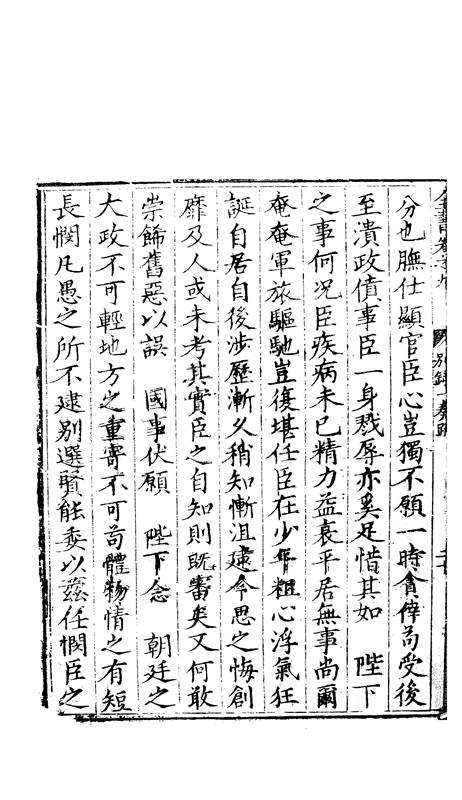 分也膴仕顯官臣心豈獨不願一時貪倖苟受後
至潰政僨事臣一身戮辱亦奚足惜其如　陛下
之事何況臣疾病未已精力益衰平居無事尚爾
奄奄軍旅驅馳豈復堪任臣在少年粗心浮氣狂
誕自居自後涉歷漸久稍知慚沮逮今思之悔創
靡及人或未考其實臣之自知則既審矣又何敢
崇飾舊惡以誤　國事伏願　陛下念　朝廷之
大政不可輕地方之重寄不可苟體物情之有短
長憫凡愚之所不逮別選賢能委以茲任憫臣之